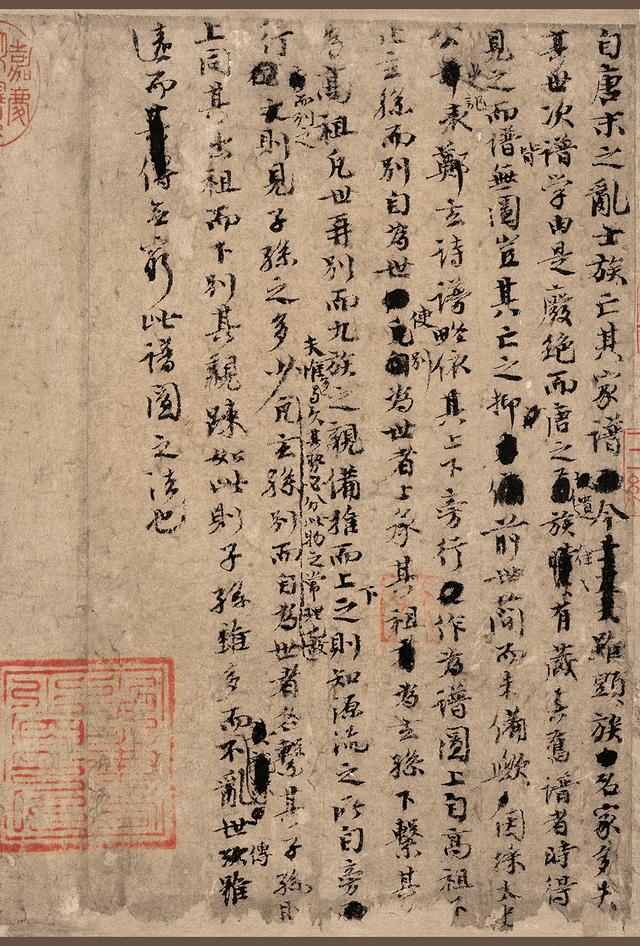 自唐末之亂士族亡其家譜今雖顯族名家多失
其世次譜学由是廢絕而唐之遺族往往有藏其舊譜者時得
見之而譜皆無圖豈其亡之抑前世簡而未備歟因採太史
公史記表鄭玄詩譜略依其上下旁行作為譜圖上自高祖下
止玄孫而別自為世使別為世者上承其祖為玄孫下繫其
為高祖凡世再別而九族之親備推而上下之則知源流之所自旁
行而列之則見子孫之多少夫惟多與久其勢必分此物之常理也凡玄孫別而自為世者各繫其子孫
上同其出祖而下別其親疎如此則子孫雖多而不亂世傳雖
遠而無窮此譜圖之法也
嘉慶